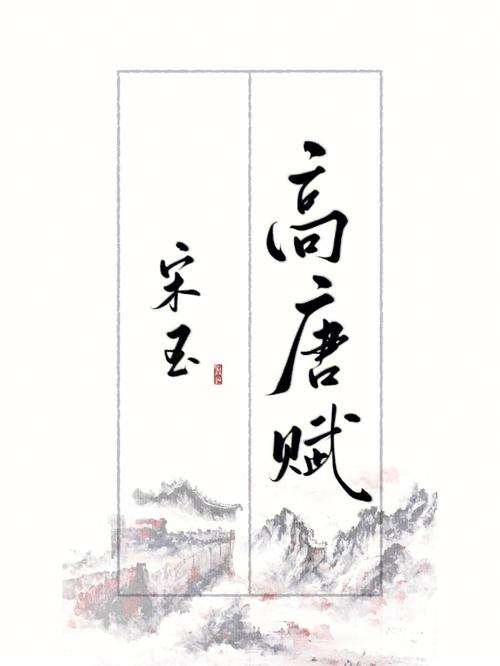 高唐赋
宋玉